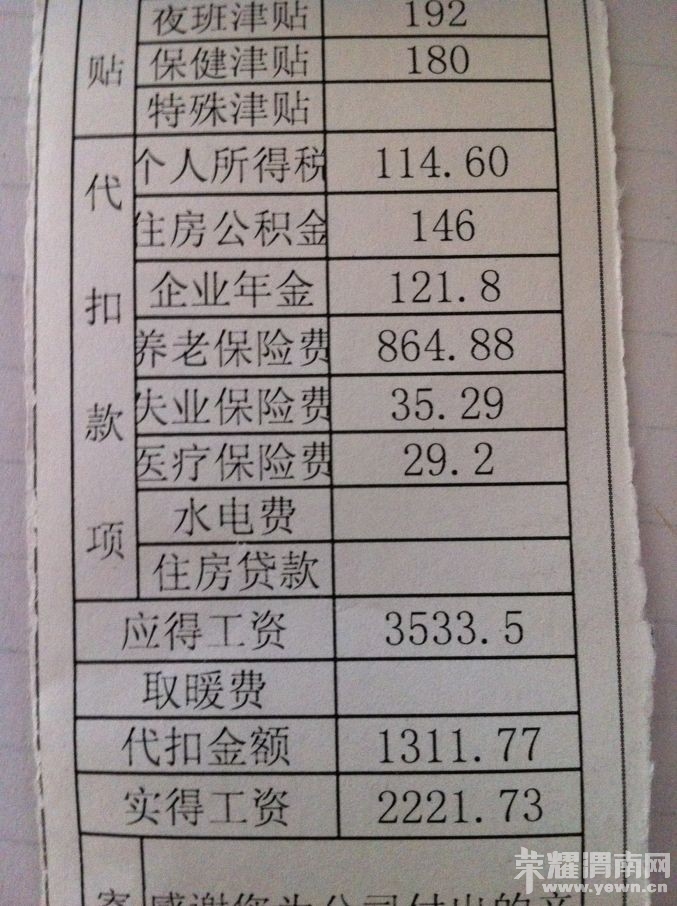 夜班津贴 192
贴 保健津贴 180
特殊津贴
代扣款项
个人所得税 114.60
住房公积金 146
企业年金 121.8
养老保险费 864.88
失业保险费 35.29
医疗保险费 29.2
水电费
住房贷款
应得工资 3533.5
取暖费
代扣金额 1311.77
实得工资 2221.73
感谢您为公司付出的辛
荣耀渭南网
www.yewn.cn